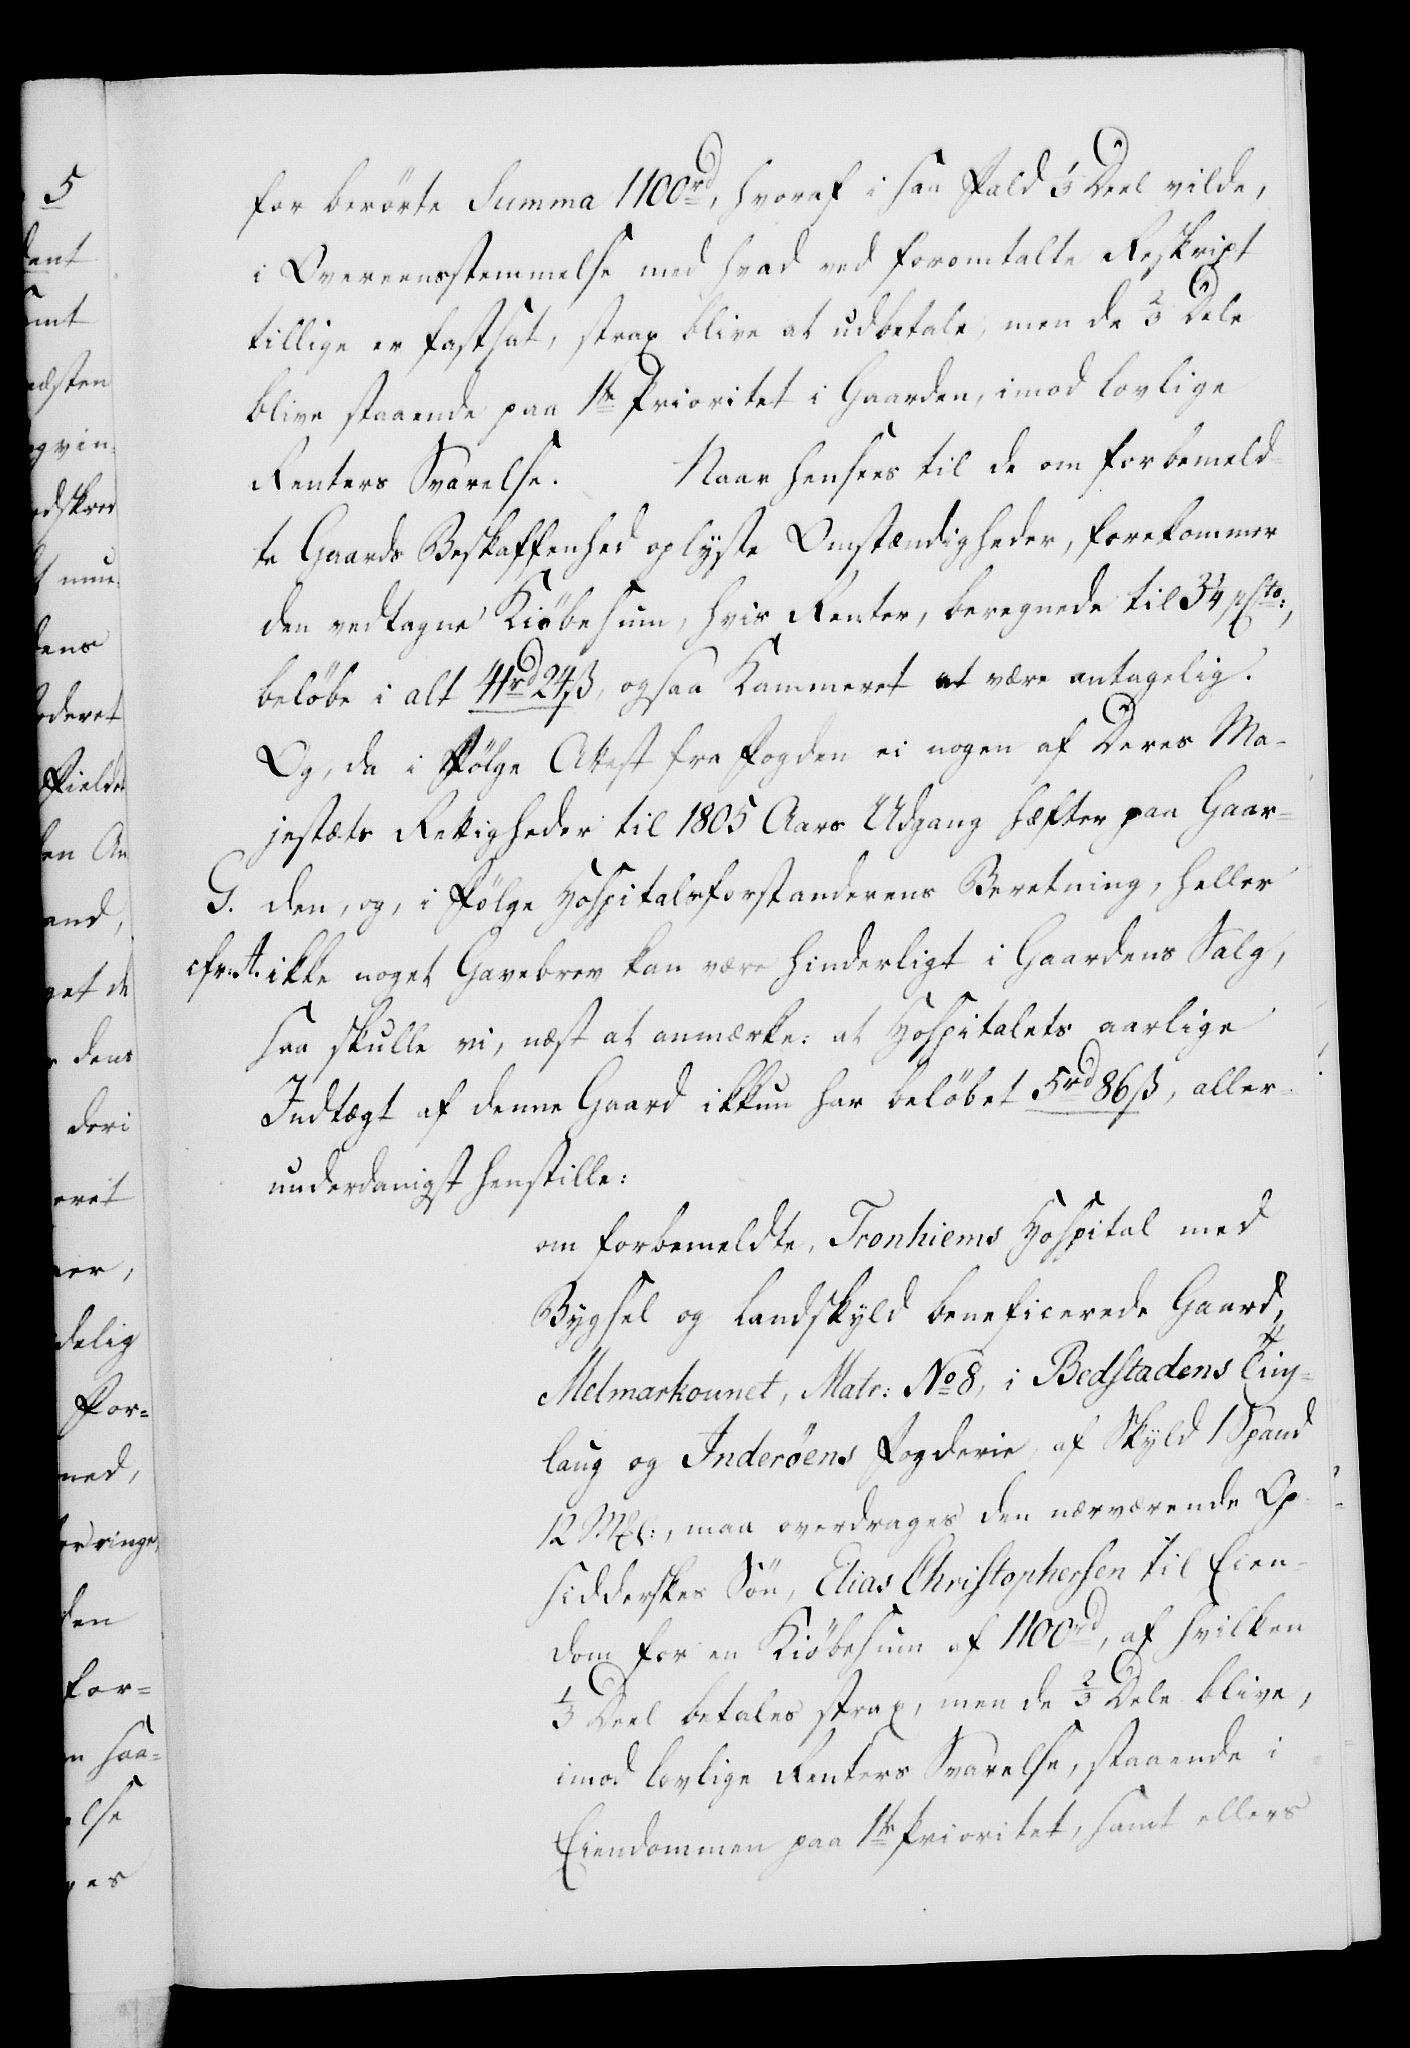 for berörte Summa 1100rd, hvoraf i saa Fald 1/3 Deel vilde,
i Overeensstemmelse med hvad ved foromtalte Reskript
tillige er fastsat, strax blive at udbetale, men de 2/3 Dele
blive staaende paa 1te Prioritet i Gaarden, imod lovlige
Renters Svarelse. Naar hensees til de om forbemeld-
te Gaards Beskaffenhed oplyste Omstændigheder, forekommer
den vedtagne Kiöbesum, hvis Renter, beregnede til 3¾ pCto:,
belöbe i alt 41rd 24ß, ogsaa Kammeret at være antagelig.
Og, da i Fölge Attest fra Fogden ei nogen af Deres Ma-
jestæts Rettigheder til 1805 Aars Udgang hæfter paa Gaar-
G. den, og, i Fölge Hospitalsforstanderens Beretning, heller
cfr: A. ikke noget Gavebrev kan være hinderligt i Gaardens Salg,
saa skulle vi, næst at anmærke: at Hospitalets aarlige
Indtægt af denne Gaard ikkun har belöbet 5rd 86ß, aller-
underdanigst henstille:
om forbemeldte, Tronhiems Hospital med
Bygsel og Landskyld beneficerede Gaard,
Melmarkounet, Matr: No 8, i Bedstadens Ting-
laug og Inderöens Fogderie, af Skyld 1 Spand
12 Mkl:, maa overdrages den nærværende Op-
sidderskes Sön, Elias Christophersen til Eien-
dom for en Kiöbesum af 1100rd, af hvilken
1/3 Deel betales strax, men de 2/3 Dele blive,
imod lovlige Renters Svarelse, staaende i
Eiendommen paa 1te Prioritet, samt ellers